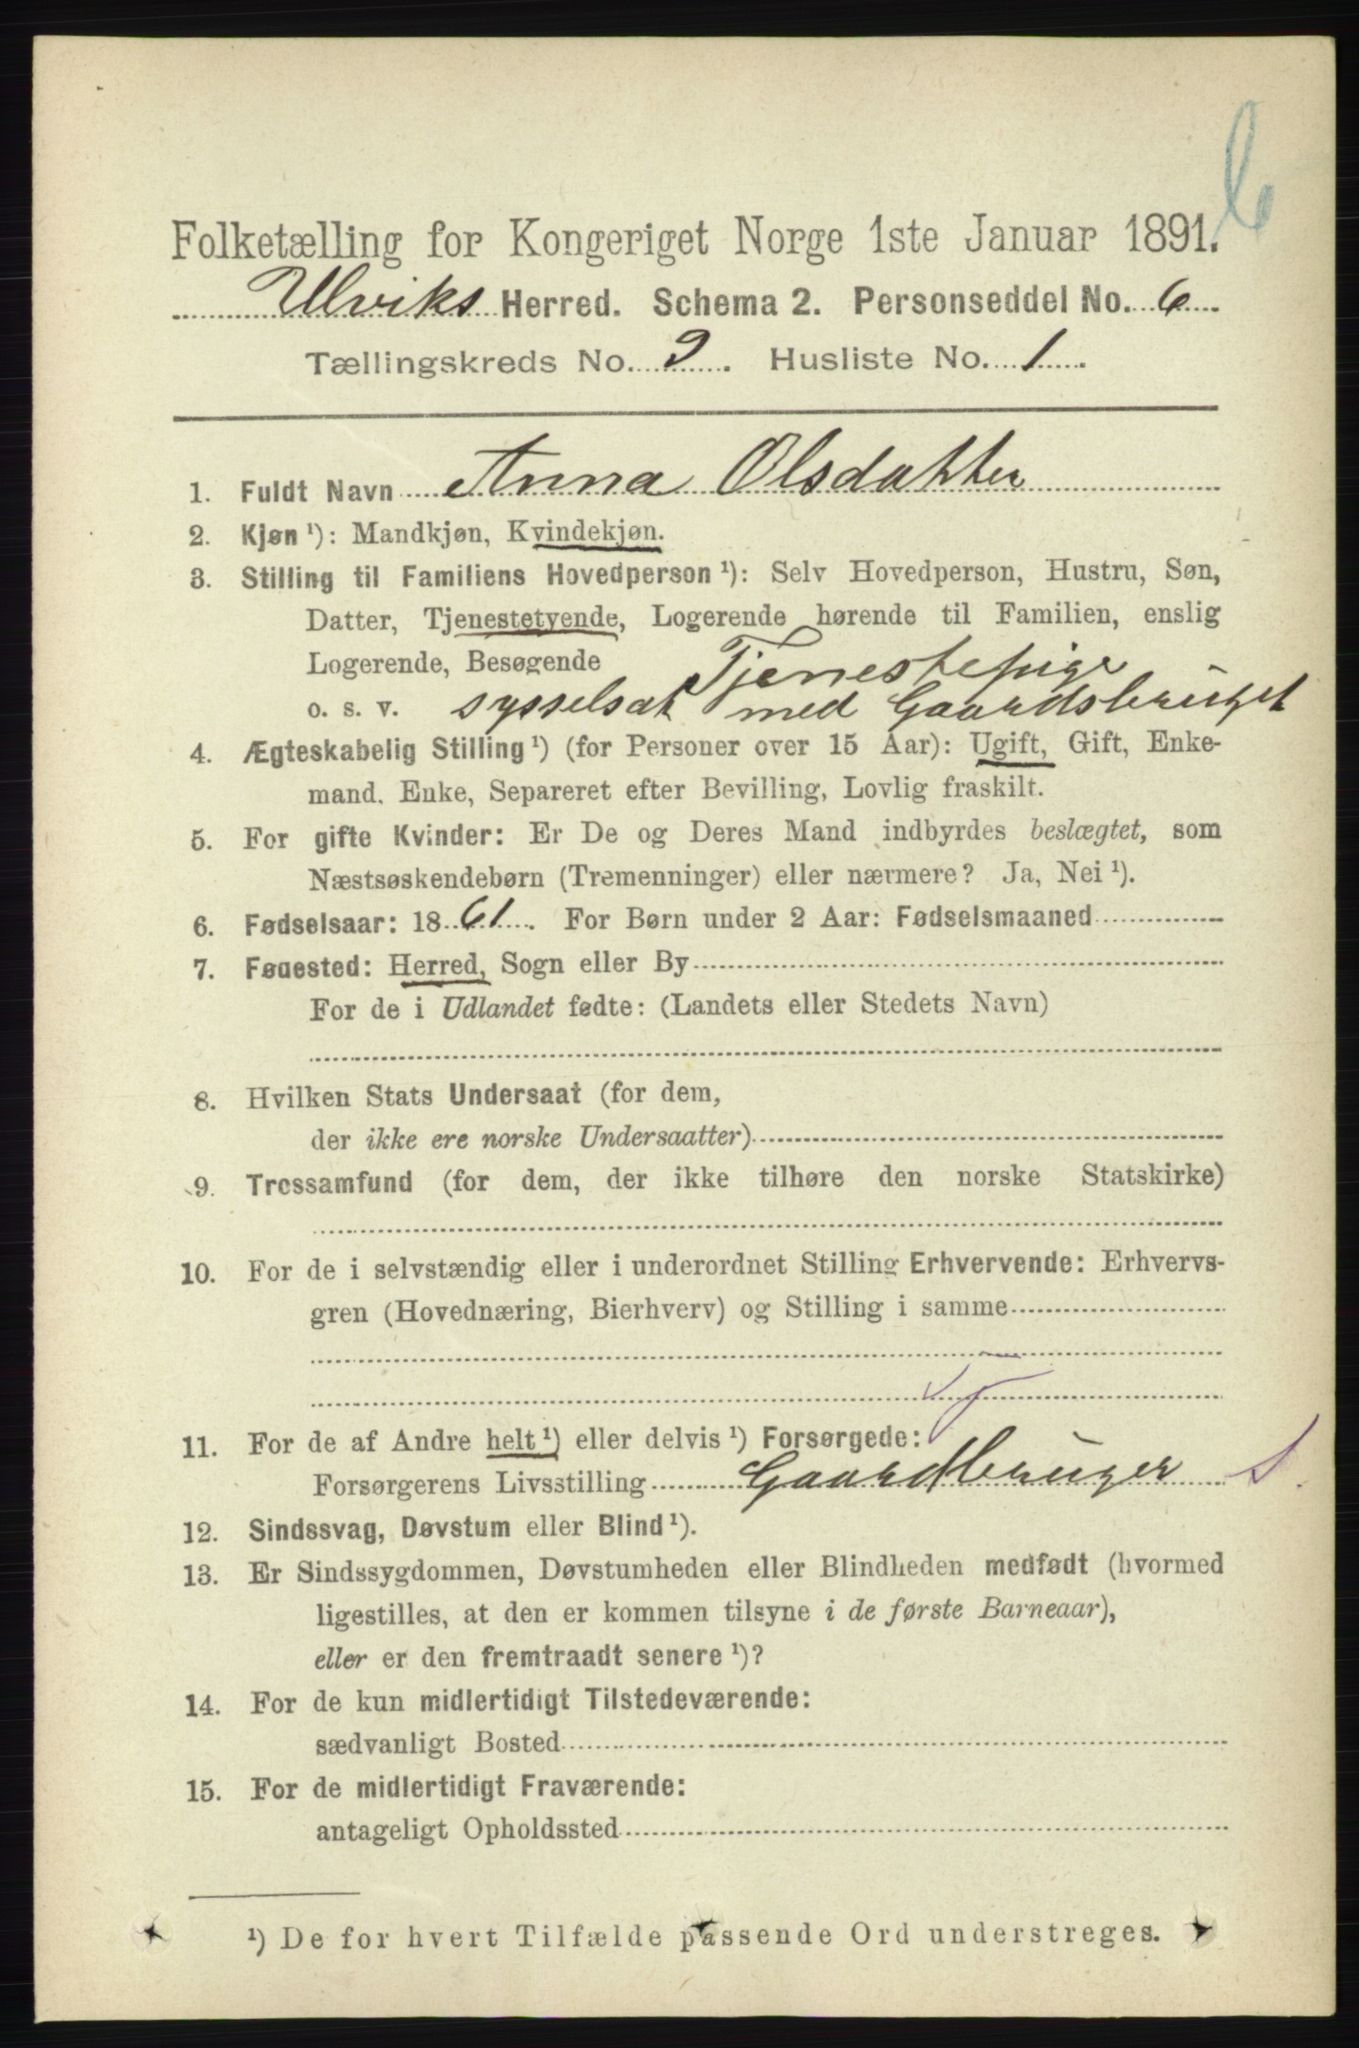 6
Folketælling for Kongeriget Norge 1ste Januar 1891.
Ulviks Herred. Schema 2. Personseddel No. 6
Tællingskreds No. 9. Husliste No. 1.
1. Fuldt Navn Anna Olsdatter
2. Kjøn ¹): Mandkjøn, Kvindekjøn.
3. Stilling til Familiens Hovedperson ¹): Selv Hovedperson, Hustru, Søn,
Datter, Tjenestetyende, Logerende hørende til Familien, enslig
Logerende, Besøgende Tjenestepige
o. s. v. sysselsat med Gaardsbruget
4. Ægteskabelig Stilling ¹) (for Personer over 15 Aar): Ugift, Gift, Enke-
mand, Enke, Separeret efter Bevilling, Lovlig fraskilt.
5. For gifte Kvinder: Er De og Deres Mand indbyrdes beslægtet, som
Næstsøskendebørn (Tremenninger) eller nærmere? Ja, Nei ¹).
6. Fødselsaar: 1861. For Børn under 2 Aar: Fødselsmaaned
7. Føuested: Herred, Sogn eller By
For de i Udlandet fødte: (Landets eller Stedets Navn)
8. Hvilken Stats Undersaat (for dem,
der ikke ere norske Undersaatter)
9. Trossamfund (for dem, der ikke tilhøre den norske Statskirke)
10. For de i selvstændig eller i underordnet Stilling Erhvervende: Erhvervs-
gren (Hovednæring, Bierhverv) og Stilling i samme
11. For de af Andre helt ¹) eller delvis ¹) Forsørgede:
Forsørgerens Livsstilling Gaardbruger
12. Sindssvag, Døvstum eller Blind ¹).
13. Er Sindssygdommen, Døvstumheden eller Blindheden medfødt (hvormed
ligestilles, at den er kommen tilsyne i de første Barneaar),
eller er den fremtraadt senere ¹)?
14. For de kun midlertidigt Tilstedeværende:
sædvanligt Bosted
15. For de midlertidigt Fraværende:
antageligt Opholdssted
¹) De for hvert Tilfælde passende Ord understreges.